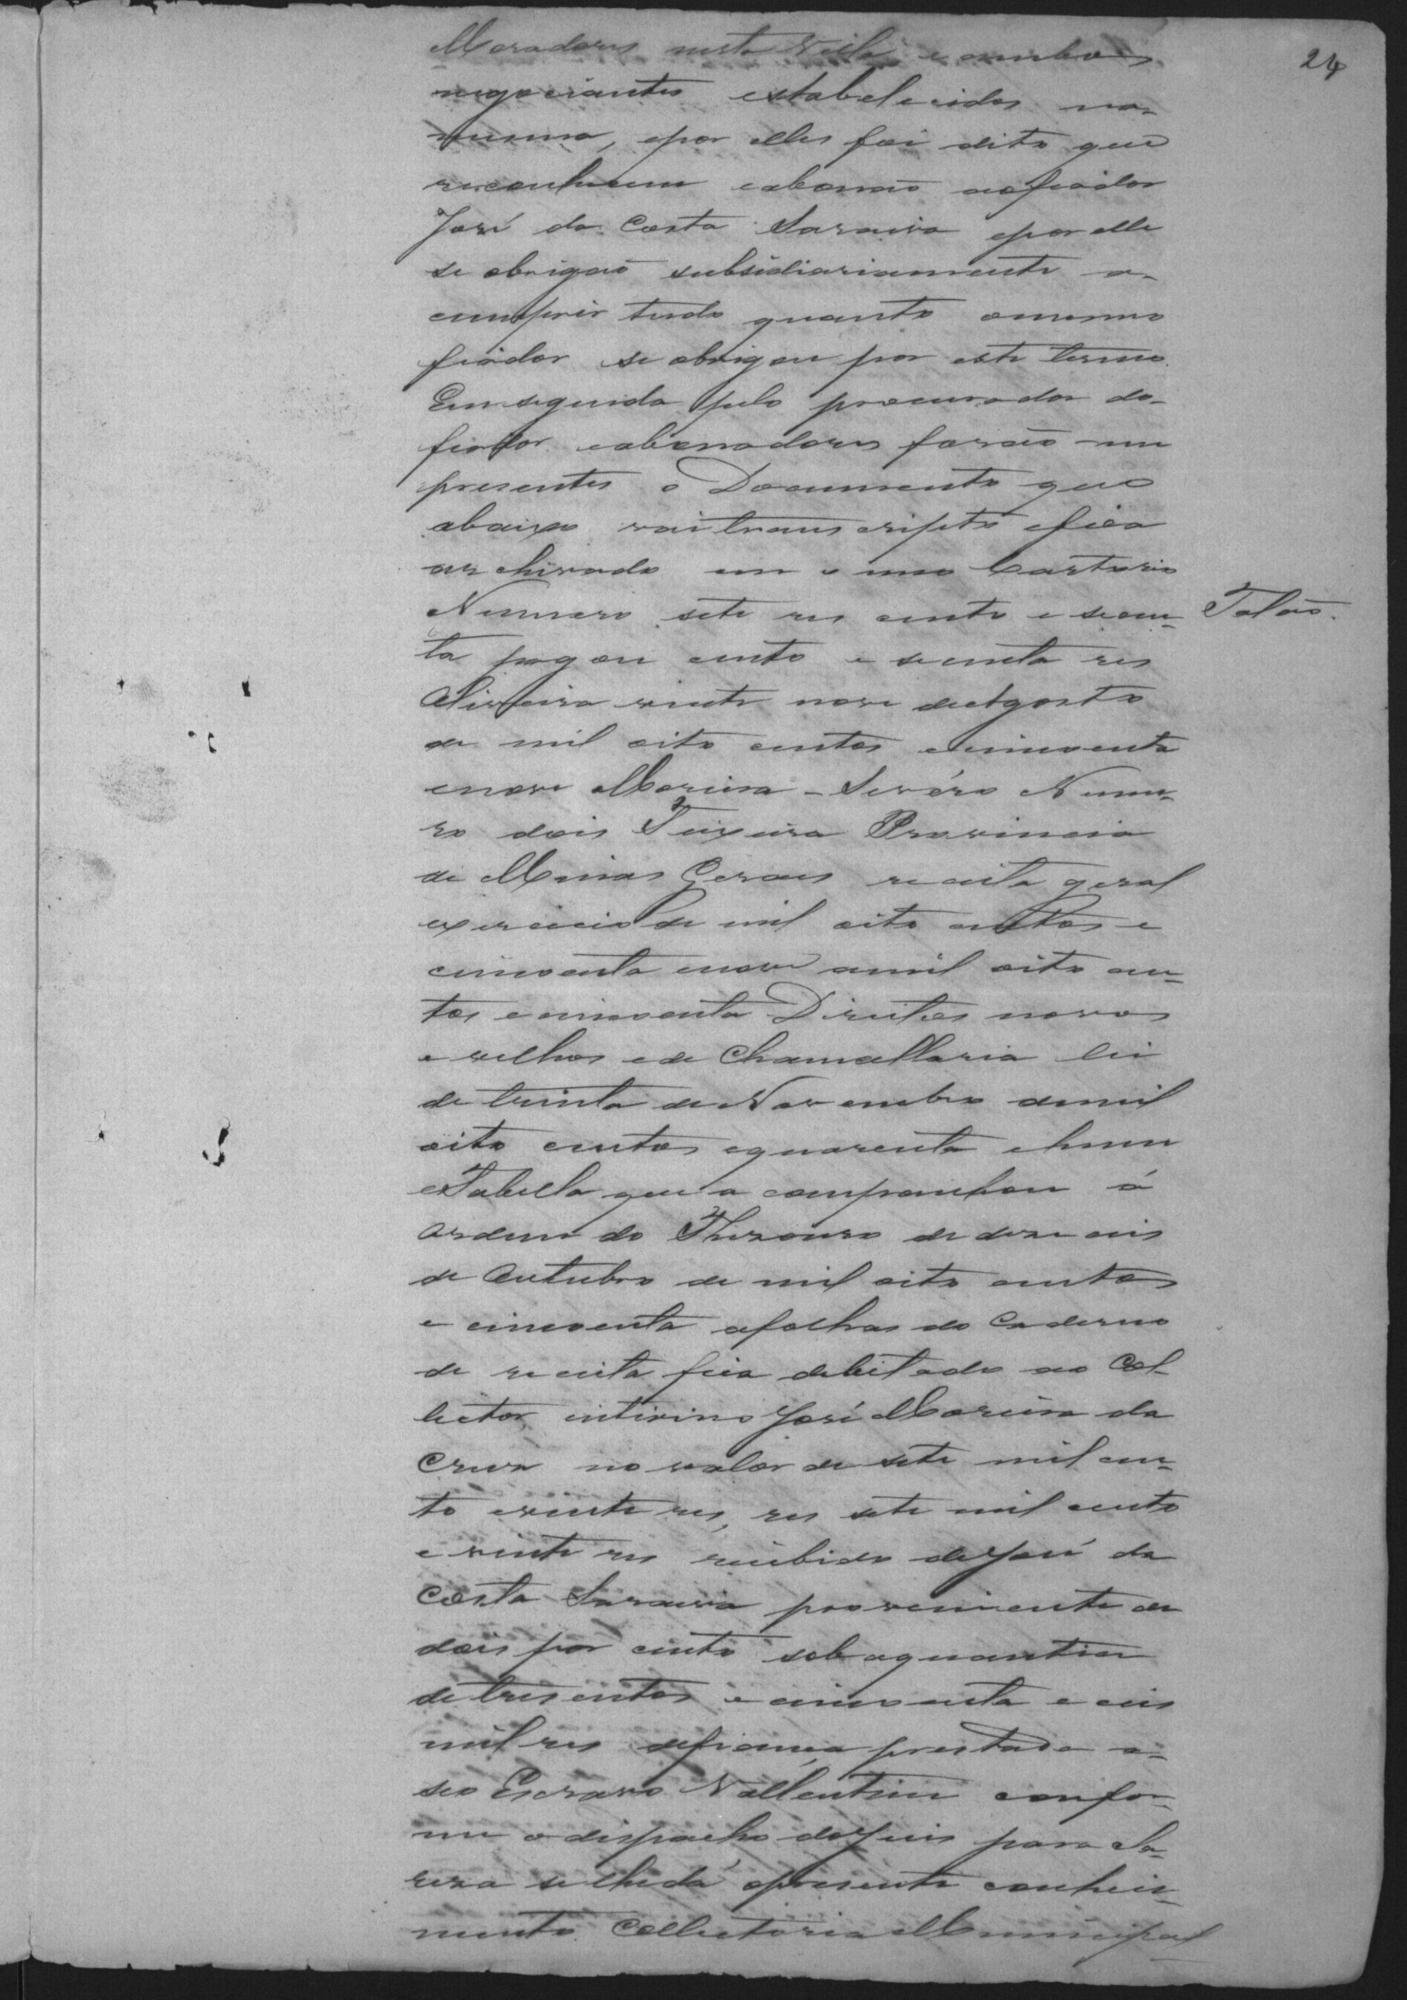 24
Moradores nesta Villa e ambos
negociantes estabelecidos na
mesma, epor elles foi dito que
reconhecem eabonão aofiador
José da Costa Saraiva epor elle
se obrigaõ subsidiariamente a-
cumprir tudo quanto omesmo
fiador se obrigou por este termo.
Emseguida pelo procurador do-
fiador eabonadores foraõ-me
presentes o Documento que
abaixo vaitranscripto efica
archivado em o meo Cartorio
Numero sete res cento e secen-
Talaõ.
ta pagou cento e secenta res
vinte nove deAgosto
de mil oito centos ecincoenta
enove Moreira - Sevéro Nume-
ro dois Teixeira Provincia
de Minas Gerais receita geral
exercicio de mil oito centos e
cincoenta enove amil oito cen-
tos ecincoenta Direitos novos
e velhos ede Chancellaria lei
de trinta de Novembro demil
oito centos equarenta ehum
eTabella que a companhou á
ordem do Thezouro de dezeceis
de Outubro de mil oito centos
e cincoenta afolhas do Caderno
de receita fica debitado ao Col-
lector interino José Moreira da
Cruz no valor de sete mil cen-
to evinte res, res sete mil cento
e vinte res recebido deJosé da
Costa Saraiva proveniente de
dois por cento sob aquantia
de tresentos e cincoenta e ceis
mil res defiança prestada a-
seo Escravo Vallentim confor-
me o dispacho doJuis para
se lhedá opresente conheci-
mento. Collectoria Municipal